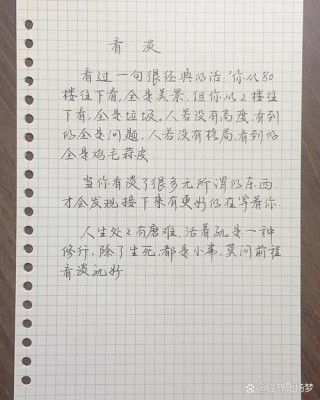 看淡
看过一句很经典的话,"你从80
楼往下看,全是美景,但你从2楼往
下看,全是垃圾.人若没有高度,看到
的全是问题,人若没有格局,看到的
全是鸡毛蒜皮
当你看淡了很多无所谓的东西
才会发现接下来有更好的在等着你
人生处处有磨难,活着就是一种
修行,除了生死,都是小事,莫问前程
看淡就好